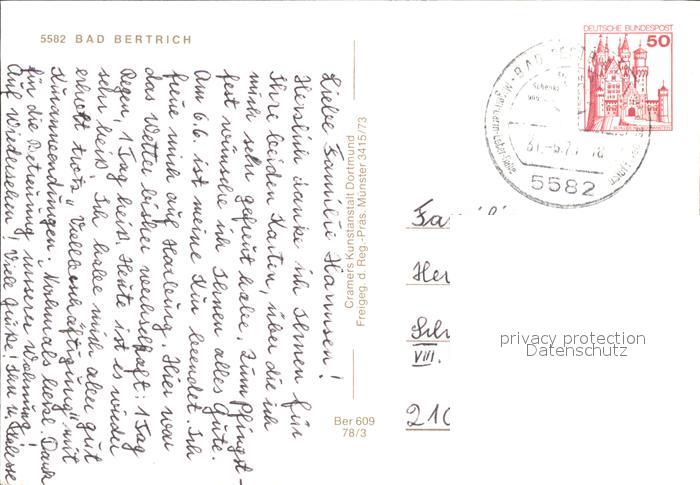 5582 BAD BERTRICH
Liebe Familie Hannsen!
Herzlich danke ich Ihnen für
Ihre beiden Karten, über die ich
mich sehr gefreut habe. Zum Pfingst-
fest wünsche ich Ihnen alles Gute.
Am 6.6. ist meine Kur beendet. Ich
freue mich auf Harburg. Hier war
das Wetter bisher wechselhaft: 1 Tag
Regen, 1 Tag heiß. Heute ist es wieder
sehr heiß. Ich habe mich aber gut
erholt trotz "Vollbeschäftigung" mit
Kuranwendungen. Nochmals herzl. Dank
für die Betreuung unserer Wohnung!
Auf Wiedersehen! Viele Grüße! Ihre
Cramers Kunstanstalt Dortmund
Freigeg. d. Reg.-Präs. Münster 3415/73
Ber 609
78/3
DEUTSCHE BUNDESPOST
50
BAD
5582
Fa
Her
Sch
VIII.
210
privacy protection
Datenschutz